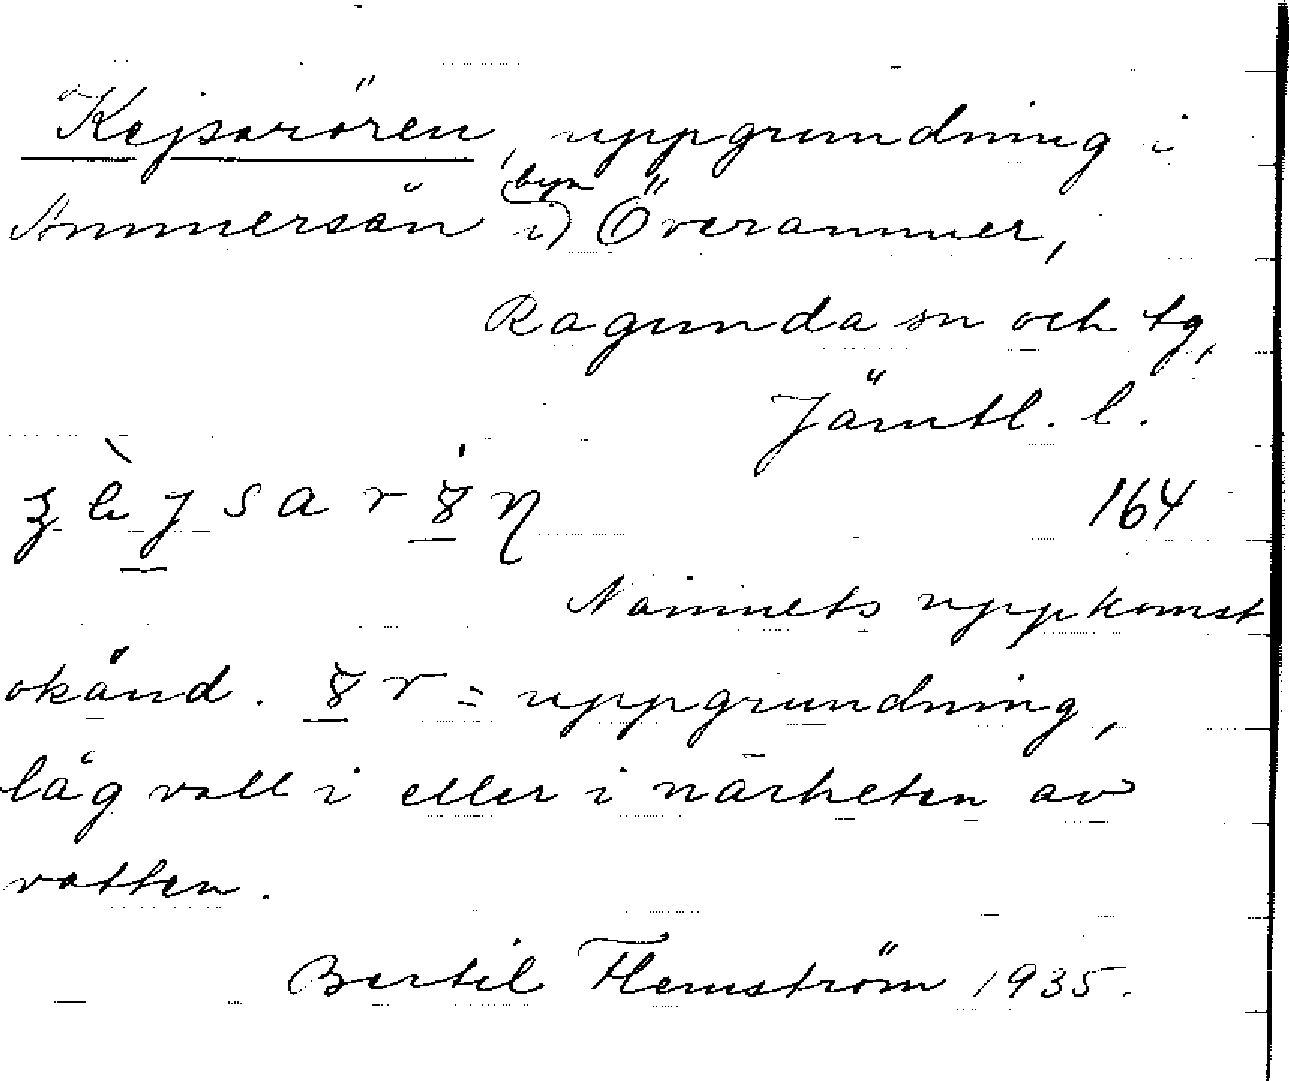 Kejsarören, uppgrundning i
Ammersån i byn Överammer,
Ragunda sn och tg,
Jämtl. l.
164
Namnets uppkomst
okänd. = uppgrundning,
låg vall i eller i närheten av
vatten.
Bertil Flemström 1935.